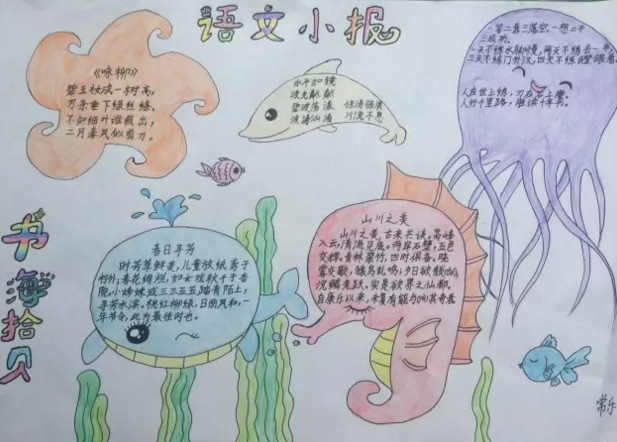 语文小报
《咏柳》
碧玉妆成一树高，
万条垂下绿丝绦。
不知细叶谁裁出，
二月春风似剪刀。
水平如镜
波光粼粼
碧波荡漾 惊涛骇浪
波涛汹涌 川流不息
一等二靠三落空，一想二干
三成功。
一天不练手脚慢，两天不练丢一半，
三天不练门外汉，四天不练瞪眼看。
人在世上练，刀在石上磨。
人行千里路，胜读十年书。
书海拾贝
春日寻芳
时芳草鲜美，儿童放纸鸢于
村外；春花绚烂，如女戏秋千于杏
院，小姊妹或三三五五踏青陌上，
寻芳水滨，桃红柳绿，日丽风和，一
年书仓，此为最佳时也。
山川之美
山川之美，古来共谈。高峰
入云，清流见底。两岸石壁，五色
交辉。青林翠竹，四时俱备。晓
雾交歇，猿鸟乱鸣；夕日欲颓，
沉鳞竞跃。实是欲界之仙都。
自康乐以来，未复有能与其奇者
常乐